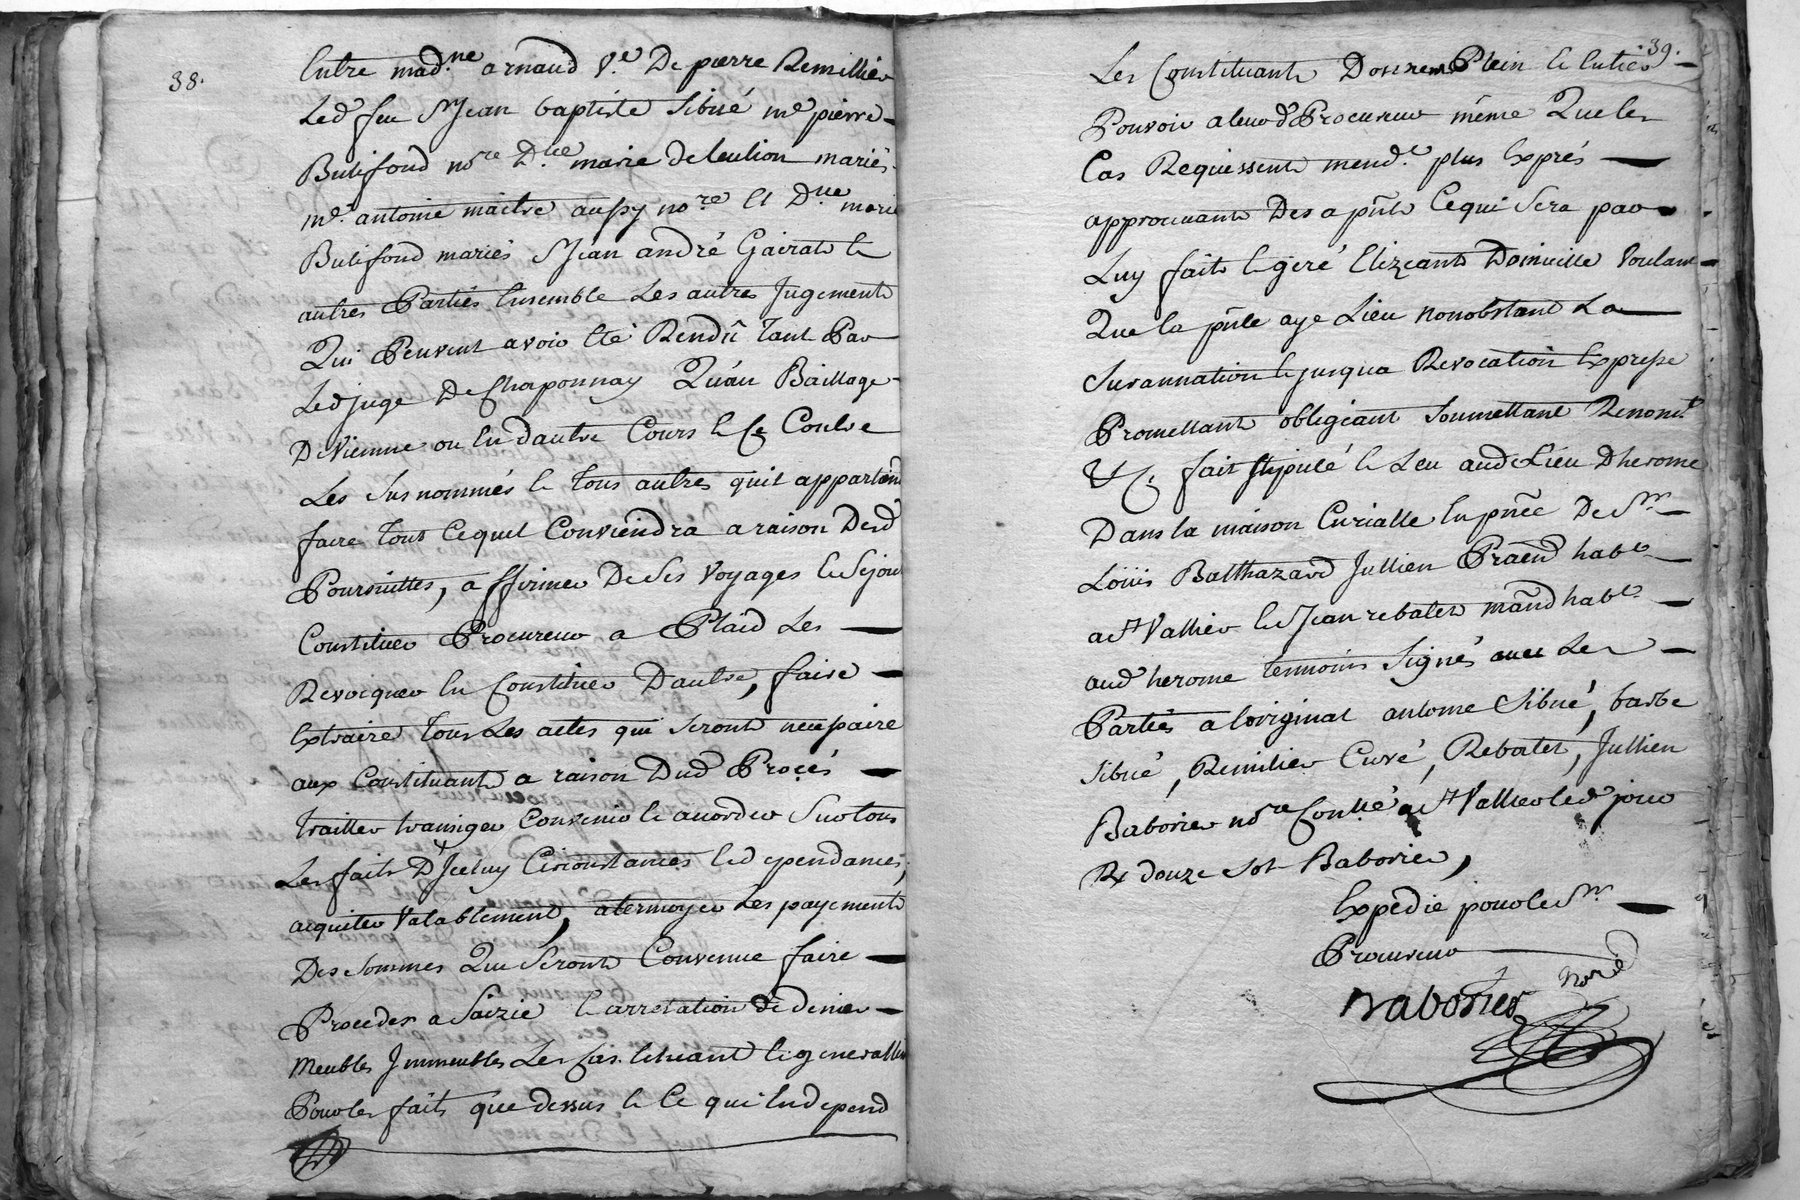 38.
Entre mad.ne arnaud v.e De pierre Remillier
Led feu Sr Jean baptiste Sibué me pierre
Butifond nore D.lle marie deleulion mariés
me. antoine maitre aussy nore Et D.ne marie
Butifond mariés Sr Jean andré Gairard Et
autres Parties Ensemble Les autres Jugements
Qui Peuvent avoir Eté Rendû Tant Par
Led juge De Chaponnay Qu'au Bailliage
De Vienne ou En dautre Cours & Ce Contre
Les Susnommés & tous autres quil appartiend
faire tout Cequil Conviendra a raison Desd
Poursuittes, affirmer De Ses Voyages & Sejour
Constituer Procureur a Plaid Les
Revocquer En Constituer Dautre, faire
Extraire tous Les actes qui Seront necessaire
aux Constituants a raison Dud Procés
traitter transiger Convenir & accorder Sur tous
Les faits D'Jceluy Circonstances & dependances,
acquiter Valablement, atermoyer Les payements
Des sommes Que Seront Convenue faire
Proceder a Saizie & arrestation de denier
Meubles Jmmeubles Les Cas Echeant & generallem
Pour les faits que dessus & Ce qui En depend
39.
Les Constituants Donnent Plein & Entier
Pouvoir a leurd Procureur même Que les
Cas Requissent mend.t plus Exprés
approuvants Des a pñt Cequi Sera par
Luy fait & geré Elizeants Domicille Voulant
Que la pñte aye Lieu nonobstant La
Surannation & jusqua Revocation Expresse
Promettant obligeant Soumettant Renonct
&c. fait stipulé & Leu aud Lieu Dherome
Dans la maison Curialle En pñce De Sr
Loüis Balthazard Jullien Praend habt
a St Vallier & Sr Jean rebatet mãnd habt
aud herome temoins Signés avec Les
Parties a loriginal antoine Sibué, barbe
Sibué, Remilier Curé, Rebatet, Jullien
Baborier nore Conllé a St Vallier led jour
Rx douze sol Baborier,
Expedié pour le Sr
Procureur
Baborier nore